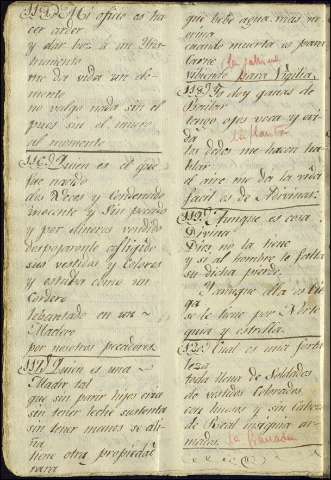 115ª Mi oficio es ha
cer arder
y dar luz à un Ins
trumento
me da vida un ele-
mento
no valgo nada sin el
pues sin el muero
al momento
116ª Quien es el que
fue nacido
dos Veces y Condenado
inocente y Sin pecado
y por dineros vendido
despojaronle aflijido
sus vestidos y Colores
y estaba como un
Cordero
lebantado en un
Madero
por nosotros pecadores
117ª Quien es una
Madre tal
que sin parir hijos cria
sin tener leche sustenta
sin tener manos se al-
iña
tiene otra propiedad
rara
que bebe agua
cuando muerta es para
carne
viviente para Vigilia
118ª Yo doy ganas de
Bailar
tengo ojos
la flauta
tu dedos me hacen ha
blar
el aire me da la vida
facil es de Adivinar
119ª Aunque es cosa
Divina
Dios no la tiene
y si al hombre le falta
su dicha pierde.
Y aunque ella es
se le tiene por Norte
guia y estrella.
120. Cual es una forta
leza
toda llena de Soldados
de vestidos Colorados
con huesos y sin Cabeza
de Real insignia ar-
mados
la Granada